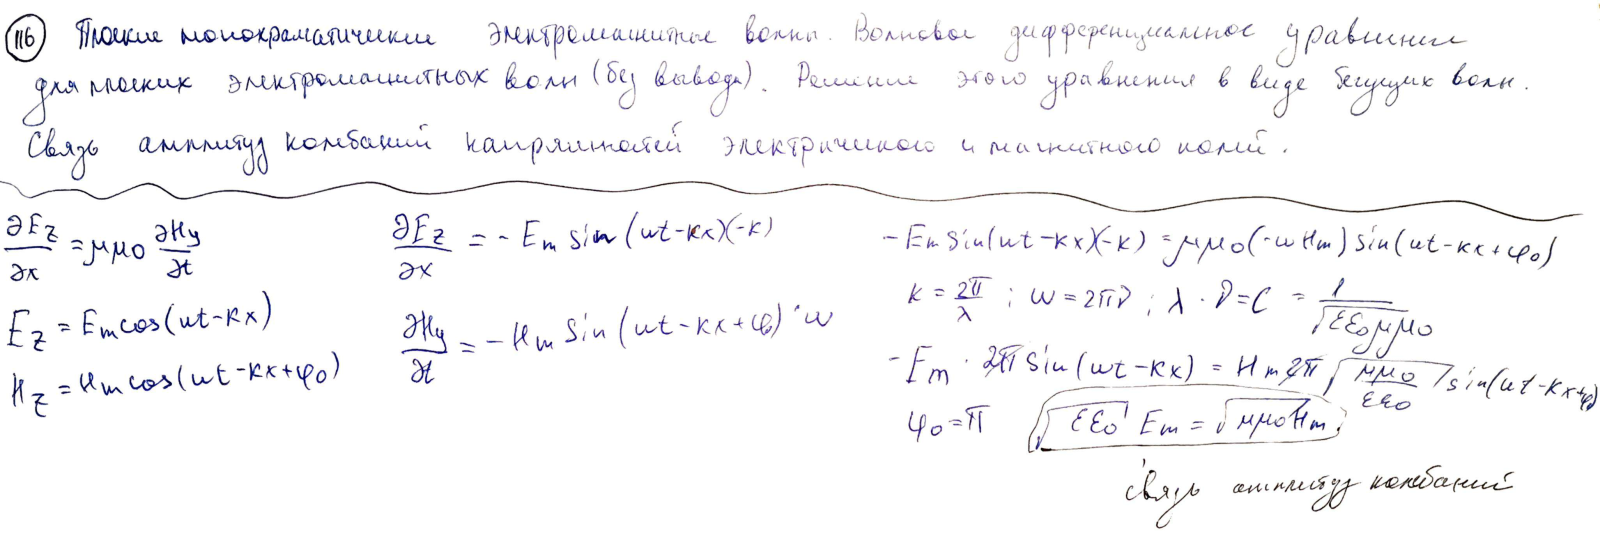 116 Плоские монохраматические электромагнитные волны. Волновое дифференциальное уравнение
для плоских электромагнитных волн (без вывода). Решение этого уравнения в виде бегущих волн.
Связь амплитуд колебаний напряжённостей электрического и магнитного полей.
∂E_z/∂x = μμ0 ∂H_y/∂t
E_z = E_m cos(ωt-kx)
H_z = H_m cos(ωt-kx+φ0)
∂E_z/∂x = -E_m sin(ωt-kx)(-k)
∂H_y/∂t = -H_m sin(ωt-kx+φ0)·ω
-E_m sin(ωt-kx)(-k) = μμ0(-ωH_m) sin(ωt-kx+φ0)
k = 2π/λ ; ω = 2πν ; λ·ν = C = 1/√(εε0μμ0)
-E_m · 2π sin(ωt-kx) = H_m 2π √(μμ0/εε0) sin(ωt-kx+φ0)
φ0 = π √(εε0) E_m = √(μμ0) H_m
связь амплитуд колебаний